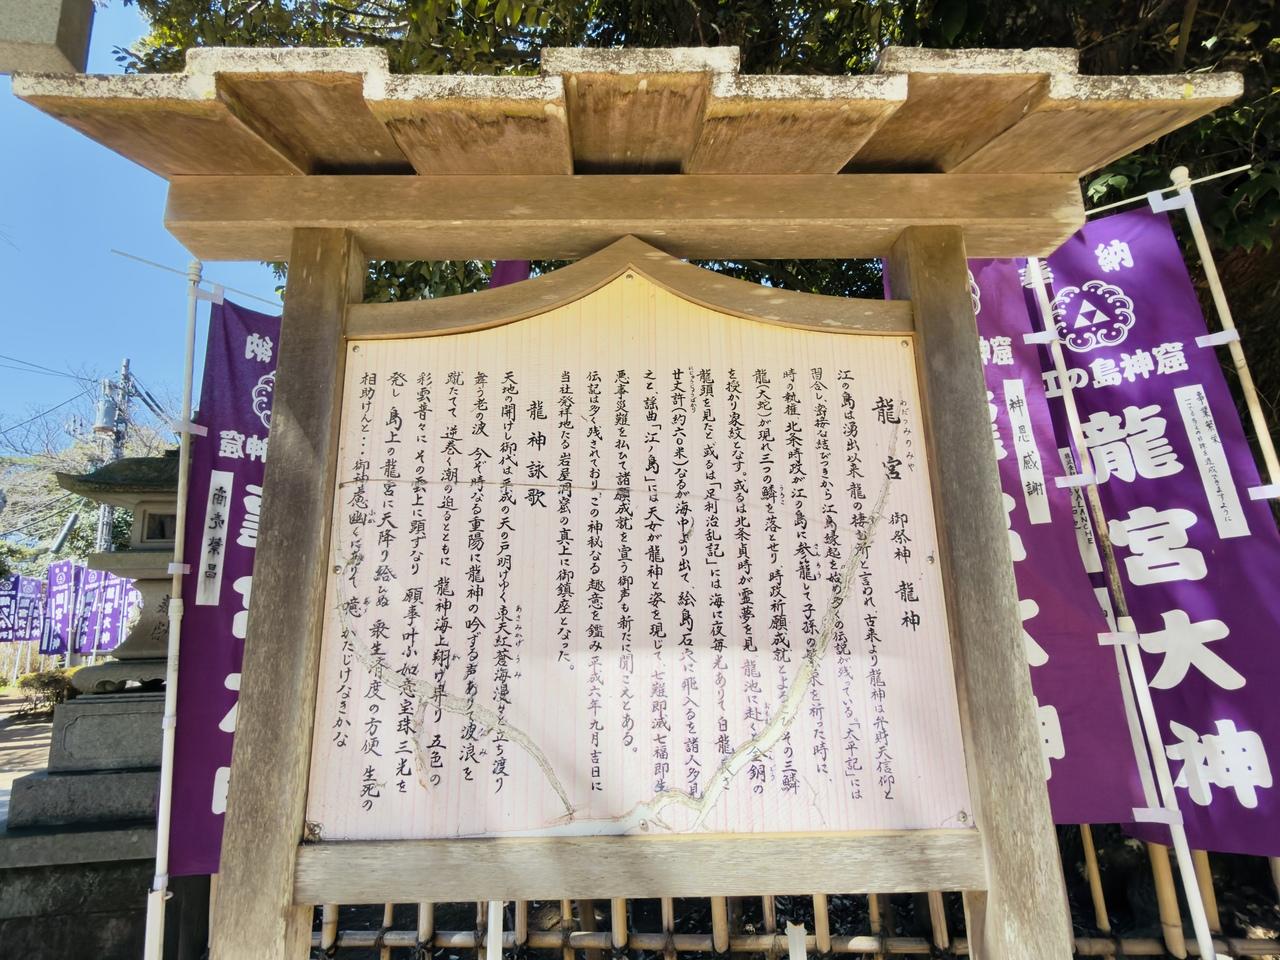 龍宮
わだつみのみや
御祭神 龍神
江の島は湧出以来龍の棲む所と言われ、古来より龍神は弁財天信仰と
習合し、密接な結びつきから江島縁起を始め多くの伝説が残っている。「太平記」には
時の執権、北条時政が江の島に参籠して子孫の繁栄を祈った時に、
龍(大蛇)が現れ三つの鱗を落とせり、時政祈願成就とよろこびその三鱗
を授かり家紋となす。或るは北条貞時が霊夢を見、龍池に赴くと金銅の
龍頭を見たと、或るは「足利治乱記」には海に夜毎光ありて白龍
廿丈許(約六〇米)なるが海中より出て、絵島石穴に飛入るを諸人多見
之と、謡曲「江ノ島」には天女が龍神と姿を現じて、七難即滅七福即生
悪事災難を払ひて諸願成就を宣う御声も新たに聞こえとある。
伝記は多く残されており、この神秘なる趣意を鑑み平成六年九月吉日に
当社発祥地たる岩屋洞窟の真上に御鎮座となった。
龍神詠歌
天地の開けし御代は平成の天の戸明けゆく東天紅蒼海漫々と立ち渡り
舞う老の波 今ぞ時なる重陽に龍神の吟ずる声ありて波浪を
蹴たてて 逆巻く潮の迫るとともに 龍神海上翔け昇り 五色の
彩雲昔々に その雲上に顕ずなり 願事叶ふ如意宝珠 三光を
発し 島上の龍宮に天降り給ひぬ 衆生済度の方便 生死の
相助けんと・・・御神慮幽
かたじけなきかな
奉納
江の島神窟
龍宮大神
事業繁栄
神恩感謝
商売繁昌
納
窟